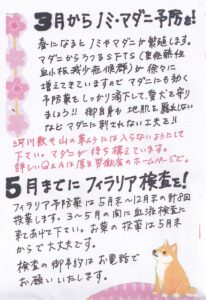 3月からノミ・マダニ予防を!
春になるとノミやマダニが繁殖します。
マダニからうつるSFTS(重症熱性
血小板減少症候群)が徐々に
増えてきていますのでマダニにも効く
予防薬をしっかり滴下して愛犬を守り
ましょう!! 御自身も地肌を露えない
などマダニに刺されない工夫を!!
河川敷や山の草ムラには入らないようにして
下さい。マダニが待ち構えています。
詳しいQ&Aは厚生労働省のホームページで。
5月までにフィラリア検査を!
フィラリア予防薬は5月末〜12月末の計8回
投薬します。3〜5月の間に血液検査に
来てあげて下さい。お薬の投薬は5月末
からで大丈夫です。
検査の御予約はお電話で
お願いいたします。